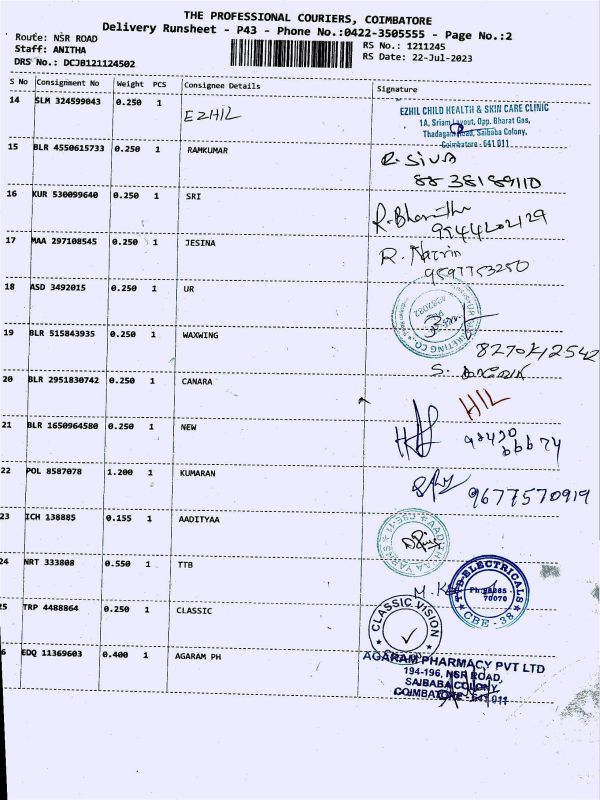 THE PROFESSIONAL COURIERS, COIMBATORE
Delivery Runsheet - P43 - Phone No.:0422-3505555 - Page No.:2
Route: NSR ROAD
Staff: ANITHA
DRS No.: DCJB121124502
RS No.: 1211245
RS Date: 22-Jul-2023
S No Consignment No Weight PCS Consignee Details Signature
14 SLM 324599043 0.250 1 EZHIL
EZHIL CHILD HEALTH & SKIN CARE CLINIC
1A, Sriam Layout, Opp. Bharat Gas,
Thadagam Road, Saibaba Colony,
Coimbatore - 641 011
15 BLR 4550615733 0.250 1 RAMKUMAR R. SIVA
8838189110
16 KUR 530099640 0.250 1 SRI
17 MAA 297108545 0.250 1 JESINA R. Nasrin
9597753250
18 ASD 3492015 0.250 1 UR
19 BLR 515843935 0.250 1 WAXWING
20 BLR 2951830742 0.250 1 CANARA
HIL
21 BLR 1650964580 0.250 1 NEW
22 POL 8587078 1.200 1 KUMARAN 9677570919
23 ICH 138885 0.155 1 AADITYAA
24 NRT 333808 0.550 1 TTB
TTB-ELECTRICALS
CBE - 38
25 TRP 4488864 0.250 1 CLASSIC
CLASSIC VISION
6 EDQ 11369603 0.400 1 AGARAM PH
AGARAM PHARMACY PVT LTD
194-196, NSR ROAD,
SAIBABA COLONY,
COIMBATORE - 641 011